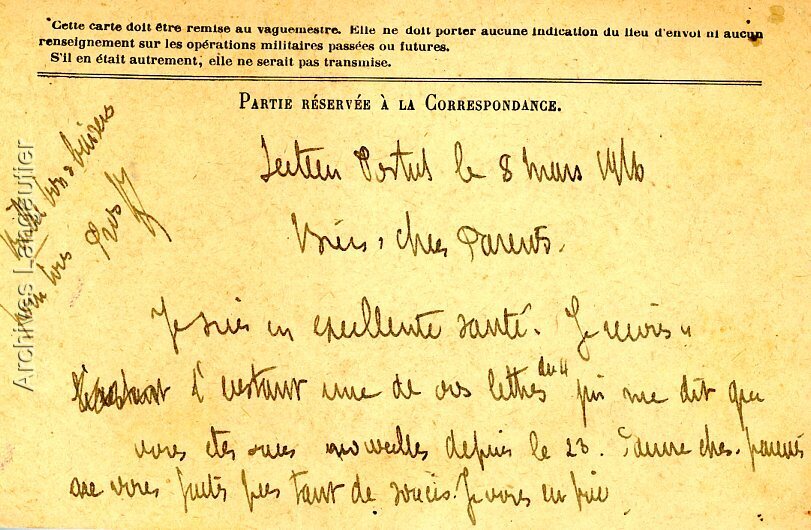 Cette carte doit être remise au vaguemestre. Elle ne doit porter aucune indication du lieu d'envoi ni aucun
renseignement sur les opérations militaires passées ou futures.
S'il en était autrement, elle ne serait pas transmise.
PARTIE RÉSERVÉE À LA CORRESPONDANCE.
Secteur Postal le 8 mars 1916
Biens chers Parents.
Je suis en excellente santé. Je reçois a
l'instant une de vos lettres du 4 qui me dit que
vous etes sans nouvelles depuis le 23. Pauvre cher parents
ne vous faites pas tant de soucis. Je vous en prie
bons baisers
Archives Langeutier